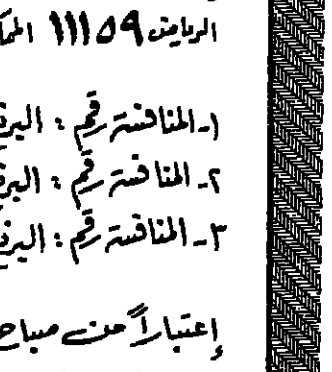 الرياض ١١١٥٩ المك
١- المنافسة رقم : البرق
٢- المنافسة رقم : البرق
٣- المنافسة رقم : البرق
إعتباراً من صباح